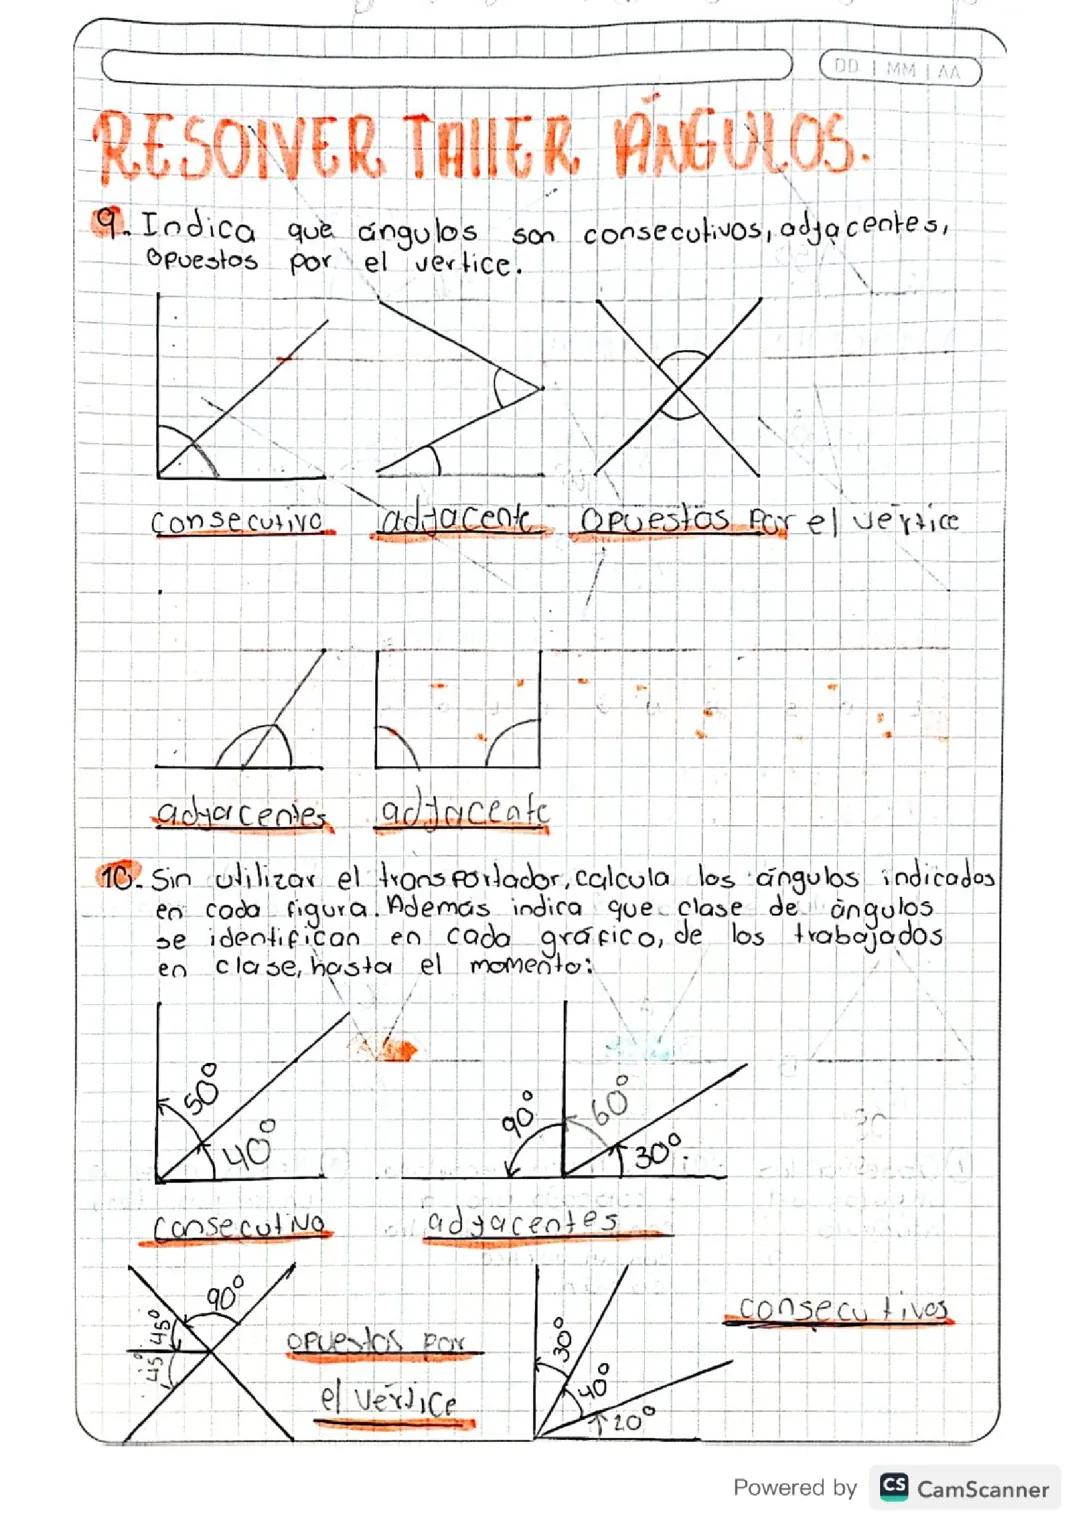 DD | MM | AA
RESOLVER TALLER ÁNGULOS.
9. Indica que ángulos son consecutivos, adyacentes,
opuestos por el vertice.
consecutivo adyacente opuestos por el vértice
adyacentes adyacente
10. Sin utilizar el transportador, calcula los ángulos indicados
en cada figura. Además indica que clase de ángulos
se identifican en cada gráfico, de los trabajados
en clase, hasta el momento:
50° 40° 90° 60° 30°.
consecutivo adyacentes
90° 45° 45°
opuestos por
el vértice
30° 40° 20°
consecutivos
Powered by CS CamScanner